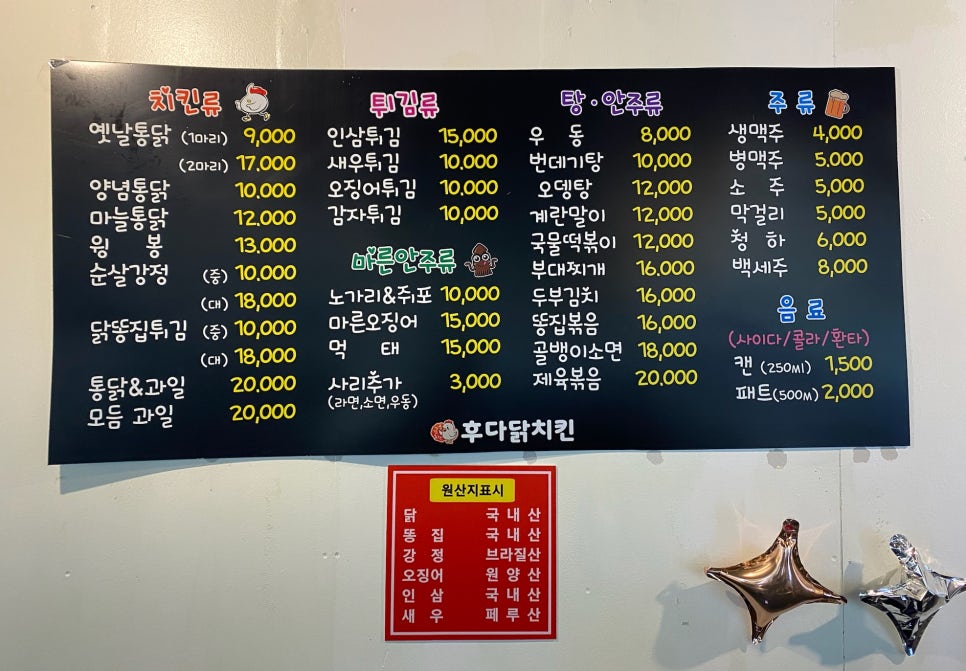 치킨류
옛날통닭 (1마리) 9,000
(2마리) 17,000
양념통닭 10,000
마늘통닭 12,000
윙 봉 13,000
순살강정 (중) 10,000
(대) 18,000
닭똥집튀김 (중) 10,000
(대) 18,000
통닭&과일 20,000
모듬 과일 20,000
튀김류
인삼튀김 15,000
새우튀김 10,000
오징어튀김 10,000
감자튀김 10,000
마른안주류
노가리&쥐포 10,000
마른오징어 15,000
먹 태 15,000
사리추가 3,000
(라면,소면,우동)
탕·안주류
우 동 8,000
번데기탕 10,000
오뎅탕 12,000
계란말이 12,000
국물떡볶이 12,000
부대찌개 16,000
두부김치 16,000
똥집볶음 16,000
골뱅이소면 18,000
제육볶음 20,000
주 류
생맥주 4,000
병맥주 5,000
소 주 5,000
막걸리 5,000
청 하 6,000
백세주 8,000
음 료
(사이다/콜라/환타)
캔 (250ml) 1,500
패트(500M) 2,000
후다닭치킨
원산지표시
닭 국 내 산
똥 집 국 내 산
강 정 브라질산
오징어 원 양 산
인 삼 국 내 산
새 우 페 루 산